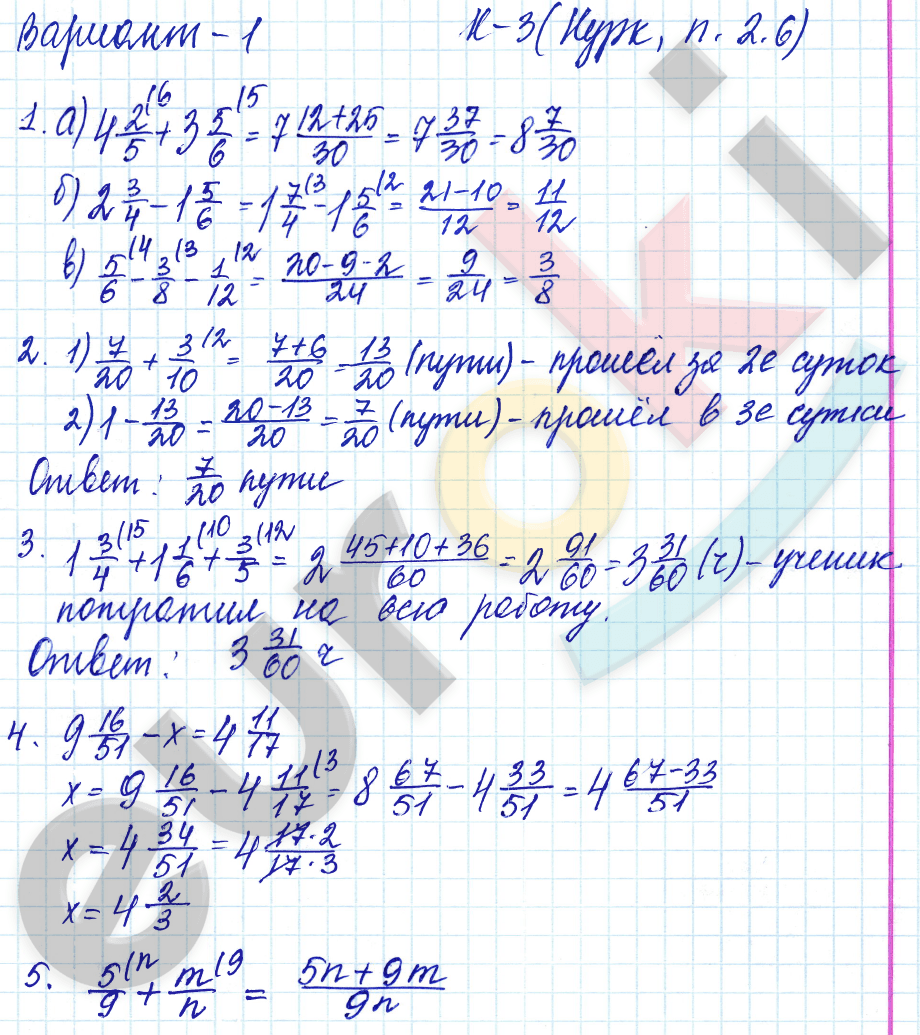 Вариант - 1 К-3 (Нурк, п. 2.6)
1. а) 4 2/5 (6 + 3 5/6 (5 = 7 (12+25)/30 = 7 37/30 = 8 7/30
б) 2 3/4 - 1 5/6 = 1 7/4 (3 - 1 5/6 (2 = (21-10)/12 = 11/12
в) 5/6 (4 - 3/8 (3 - 1/12 (2 = (20-9-2)/24 = 9/24 = 3/8
2. 1) 7/20 + 3/10 (2 = (7+6)/20 = 13/20 (пути) - прошёл за 2е суток
2) 1 - 13/20 = (20-13)/20 = 7/20 (пути) - прошёл в 3е сутки
Ответ: 7/20 пути
3. 1 3/4 (15 + 1 1/6 (10 + 3/5 (12 = 2 (45+10+36)/60 = 2 91/60 = 3 31/60 (ч) - ученик
потратил на всю работу.
Ответ: 3 31/60 ч
4. 9 16/51 - х = 4 11/17
х = 9 16/51 - 4 11/17 (3 = 8 67/51 - 4 33/51 = 4 (67-33)/51
х = 4 34/51 = 4 (17·2)/(17·3)
х = 4 2/3
5. 5/9 (n + m/n (9 = (5n+9m)/9n
euroki